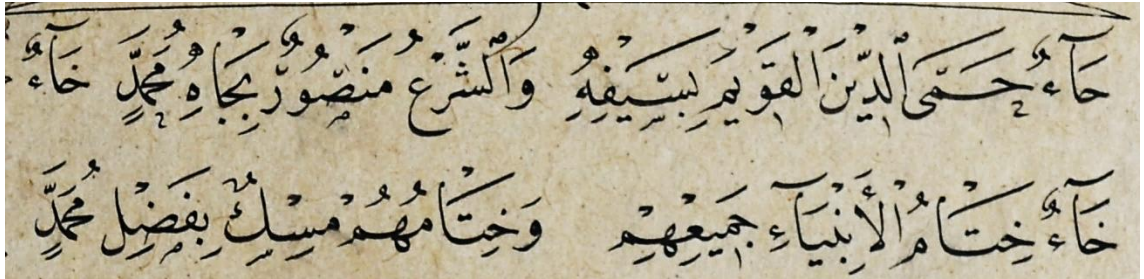 حَآءٌ حَمَى ٱلدِّيْنَ الْقَوِيْمَ بِسَيْفِهِ وَٱلشَّرْعُ مَنْصُوْرٌ بِجَاهِ مُحَمَّدٍ خَآءٌ
خَآءٌ خِتَامُ الْأَنْبِيَآءِ جَمِيْعِهِمْ وَخِتَامُهُمْ مِسْكٌ بِفَضْلِ مُحَمَّدٍ